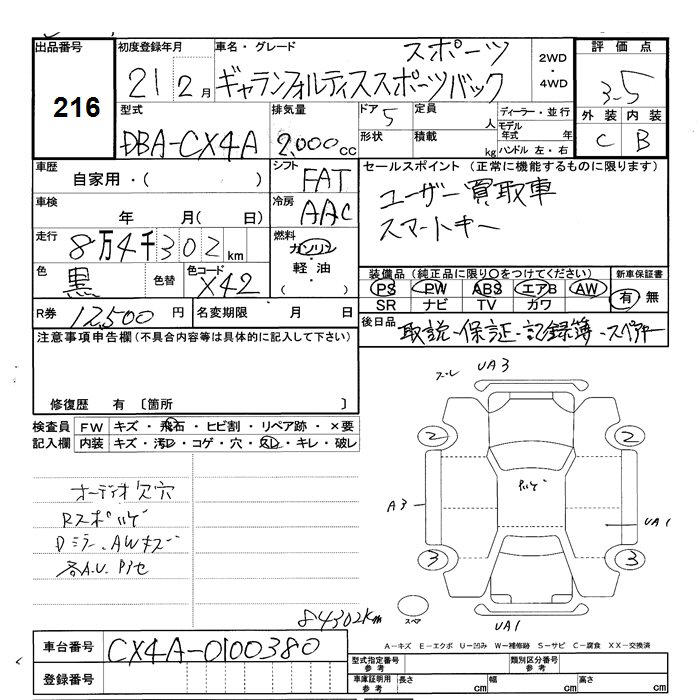 出品番号
216
初度登録年月
21 2月
車名・グレード
スポーツ
ギャランフォルティススポーツバック
2WD
・
4WD
評価点
3.5
外装 内装
C B
型式
DBA-CX4A
排気量
2,000cc
ドア 5
定員 人
ディーラー・並行
モデル年式 年
形状
積載 kg
ハンドル 左・右
車歴
自家用・( )
シフト
FAT
セールスポイント (正常に機能するものに限ります)
ユーザー買取車
スマートキー
車検
年 月( 日)
冷房
AAC
走行
8万4千302km
燃料
ガソリン
・
軽油
・
( )
色
黒
色替
色コード
X42
装備品 (純正品に限り○をつけてください)
PS PW ABS エアB AW
SR ナビ TV カワ
新車保証書
有・無
R券 12,500円
名変期限 月 日
後日品
取説・保証・記録簿・スペアキー
注意事項申告欄 (不具合内容等は具体的に記入して下さい)
修復歴 有 〔箇所 〕
検査員記入欄
FW キズ・飛石・ヒビ割・リペア跡・×要
内装 キズ・汚レ・コゲ・穴・スレ・キレ・破レ
オーディオ欠穴
Rスポハゲ
Dミラー、AWキズ
各A.U.
ズレ UA3
2 2
ハゲ
A3
UA1
3 3
スペア
UA1
84302km
A-キズ E-エクボ U-凹み W-補修跡 S-サビ C-腐食 XX-交換済
車台番号
CX4A-0100380
登録番号
型式指定番号 参考
類別区分番号 参考
車庫証明用 参考
長さ cm
幅 cm
高さ cm